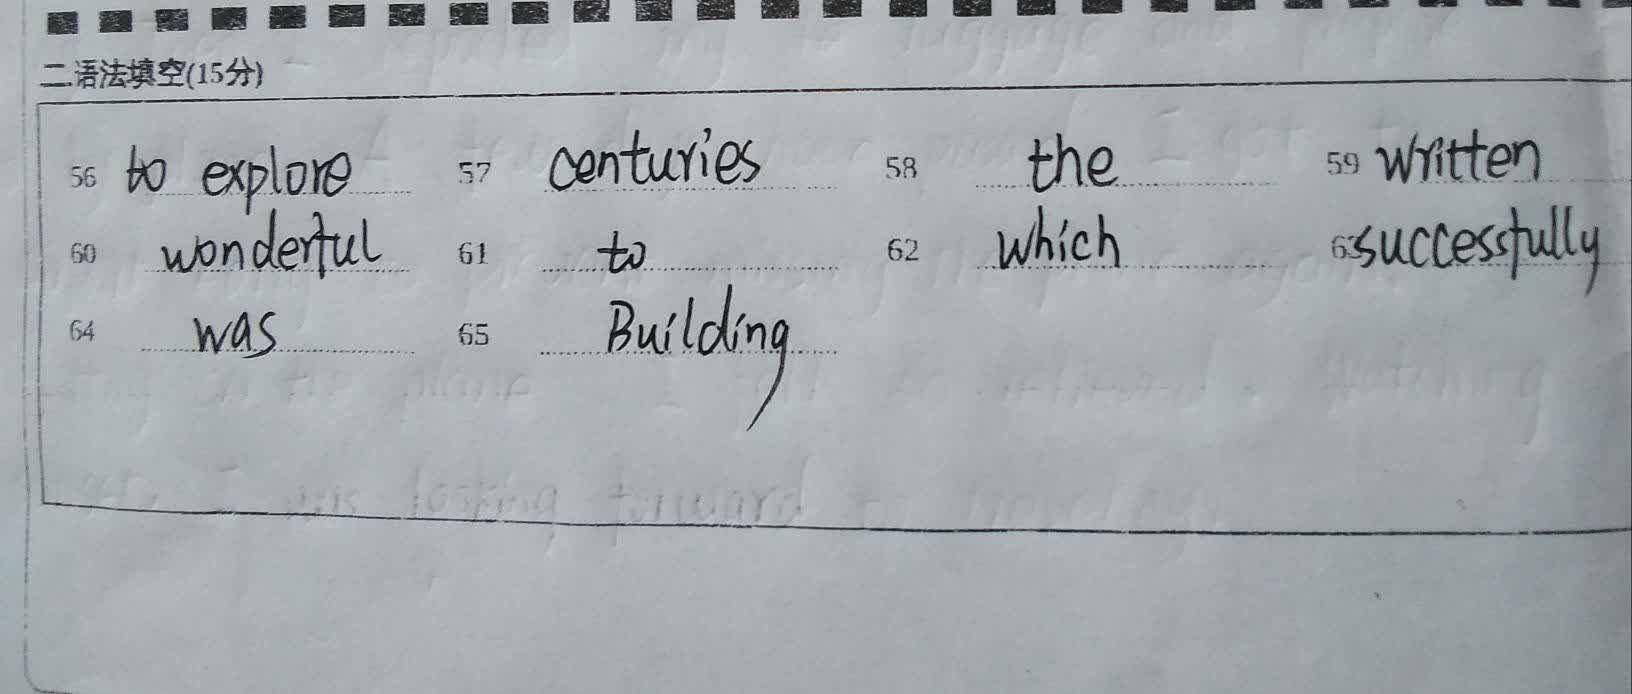 二.语法填空(15分)
56 to explore 57 centuries 58 the 59 written
60 wonderful 61 to 62 which 63 successfully
64 was 65 Building